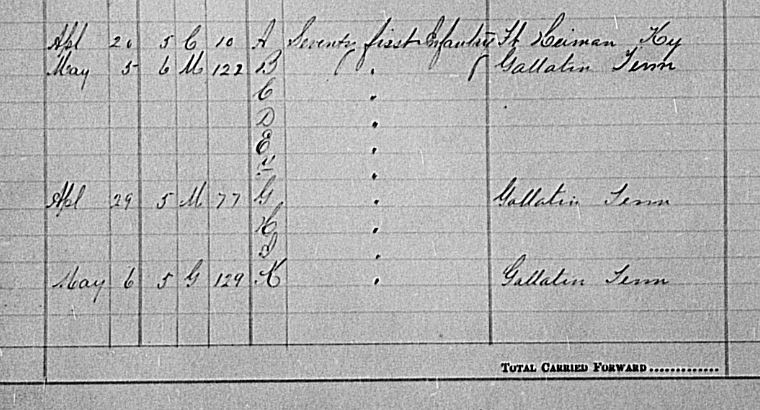 Apl 20 5 C 10 A Seventy first Infantry Ft Heiman Ky
May 5 6 M 122 B " Gallatin Tenn
C "
D "
E "
F "
Apl 29 5 M 77 G " Gallatin Tenn
H "
I "
May 6 5 G 129 K " Gallatin Tenn
TOTAL CARRIED FORWARD.............